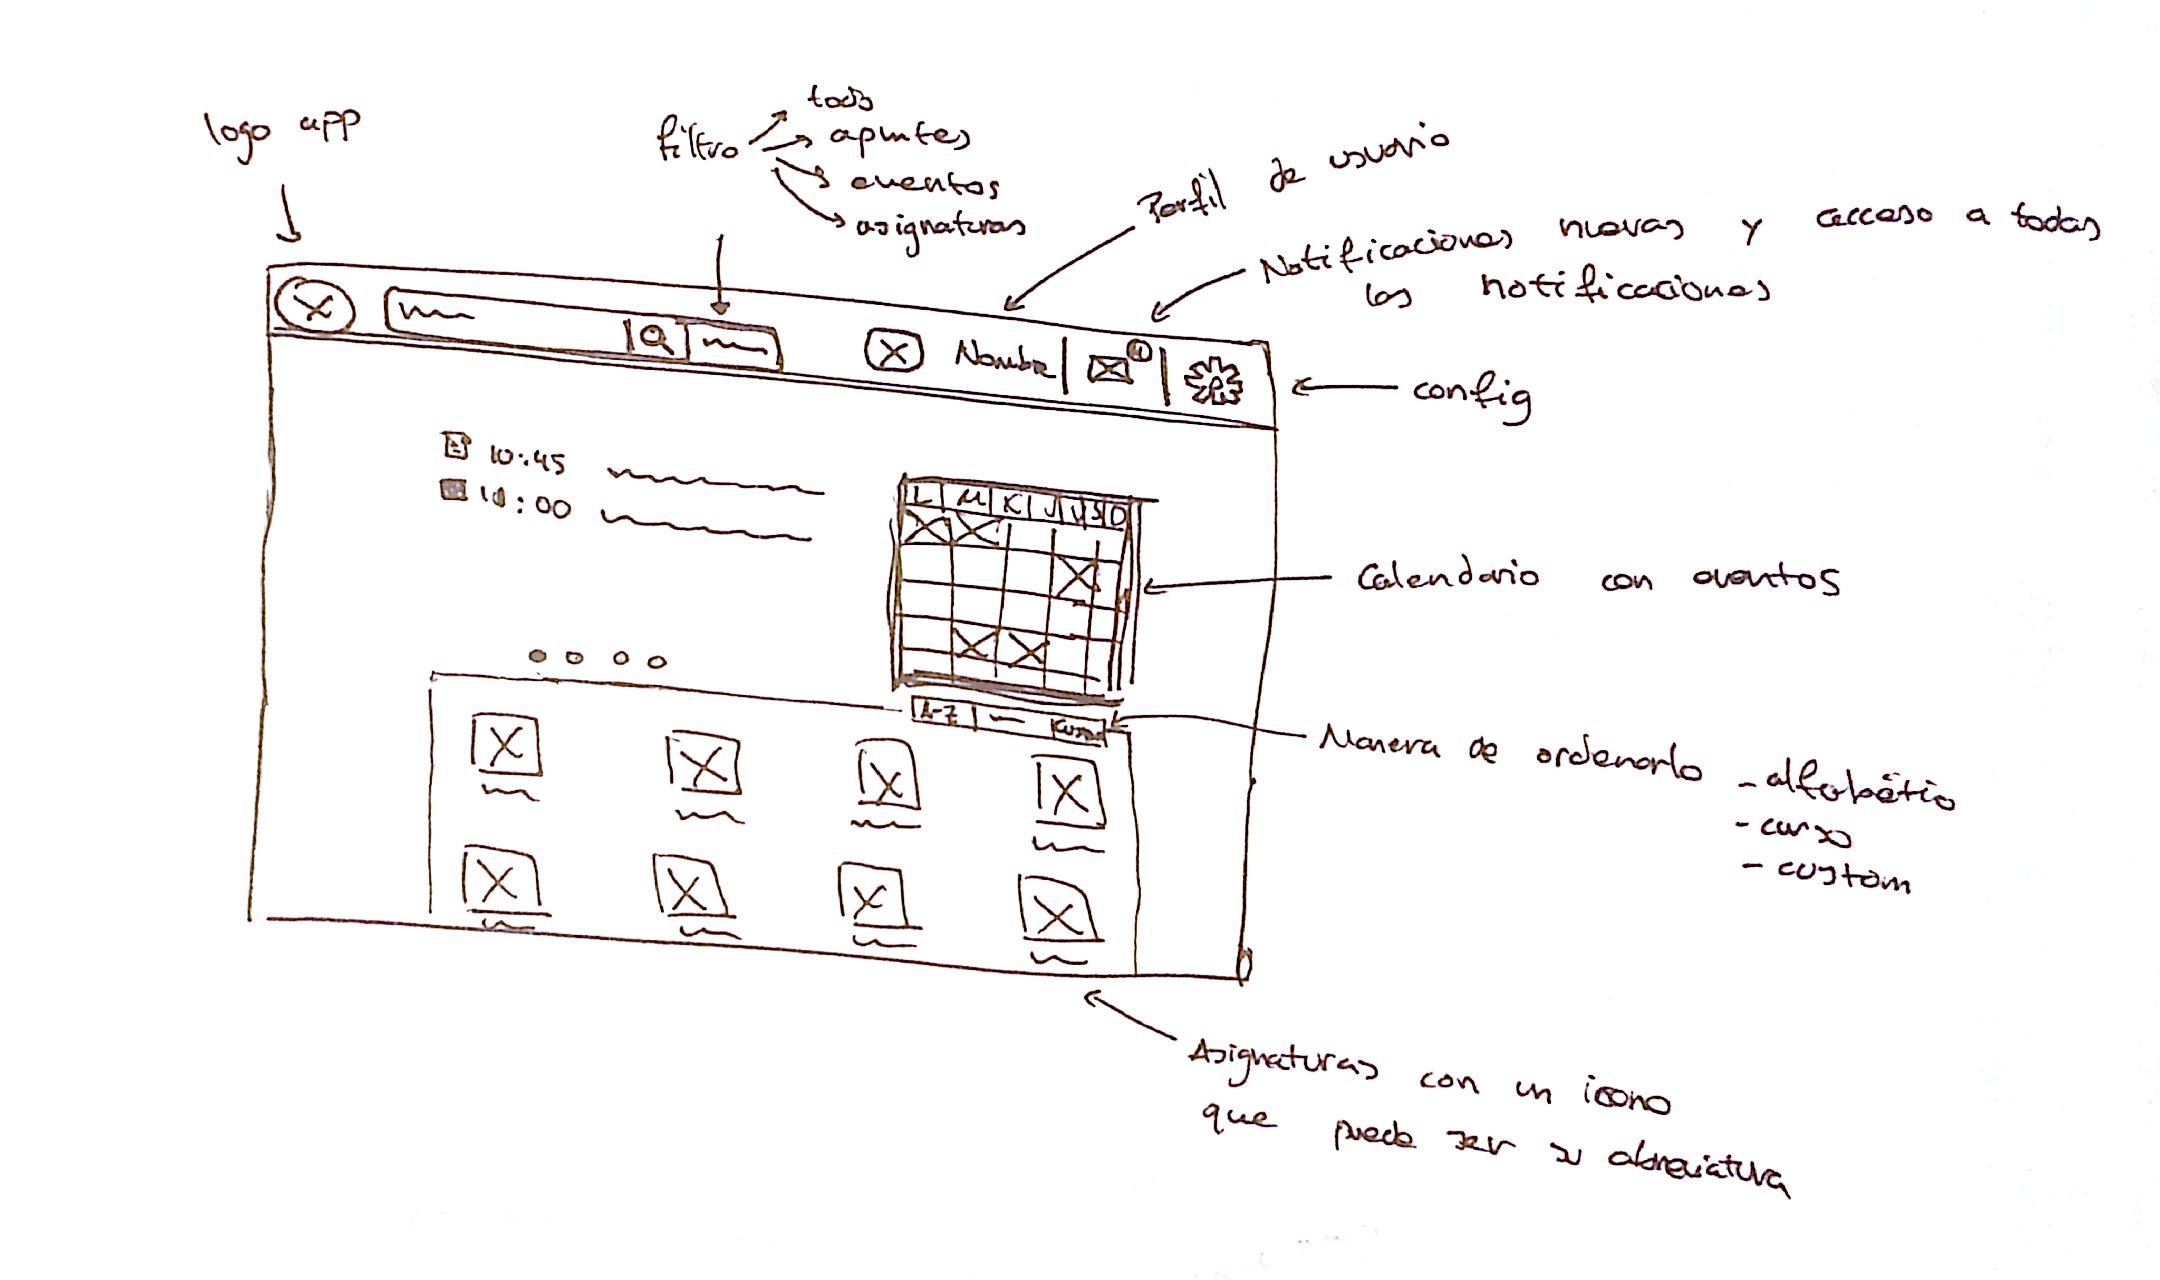 logo app
filtro
todo
apuntes
eventos
asignaturas
Perfil de usuario
Notificaciones nuevas y acceso a todas
las notificaciones
Nombre
config
10:45
L M X J V S D
Calendario con eventos
A-Z
Manera de ordenarlo
- alfabético
- curso
- custom
Asignaturas con un icono
que puede ser su abreviatura